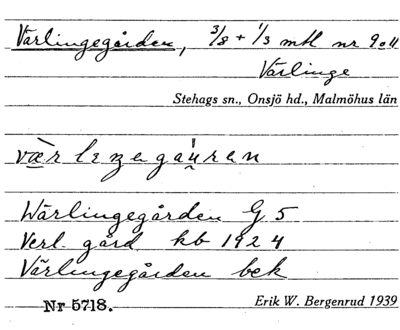 Värlingegården, 3/8 + 1/3 mtl nr 9 o 11
Värlinge
Stehags sn., Onsjö hd., Malmöhus län
Wärlingegården G 5
Verl. gård kb 1924
Värlingegården bek
Nr 5718. Erik W. Bergenrud 1939